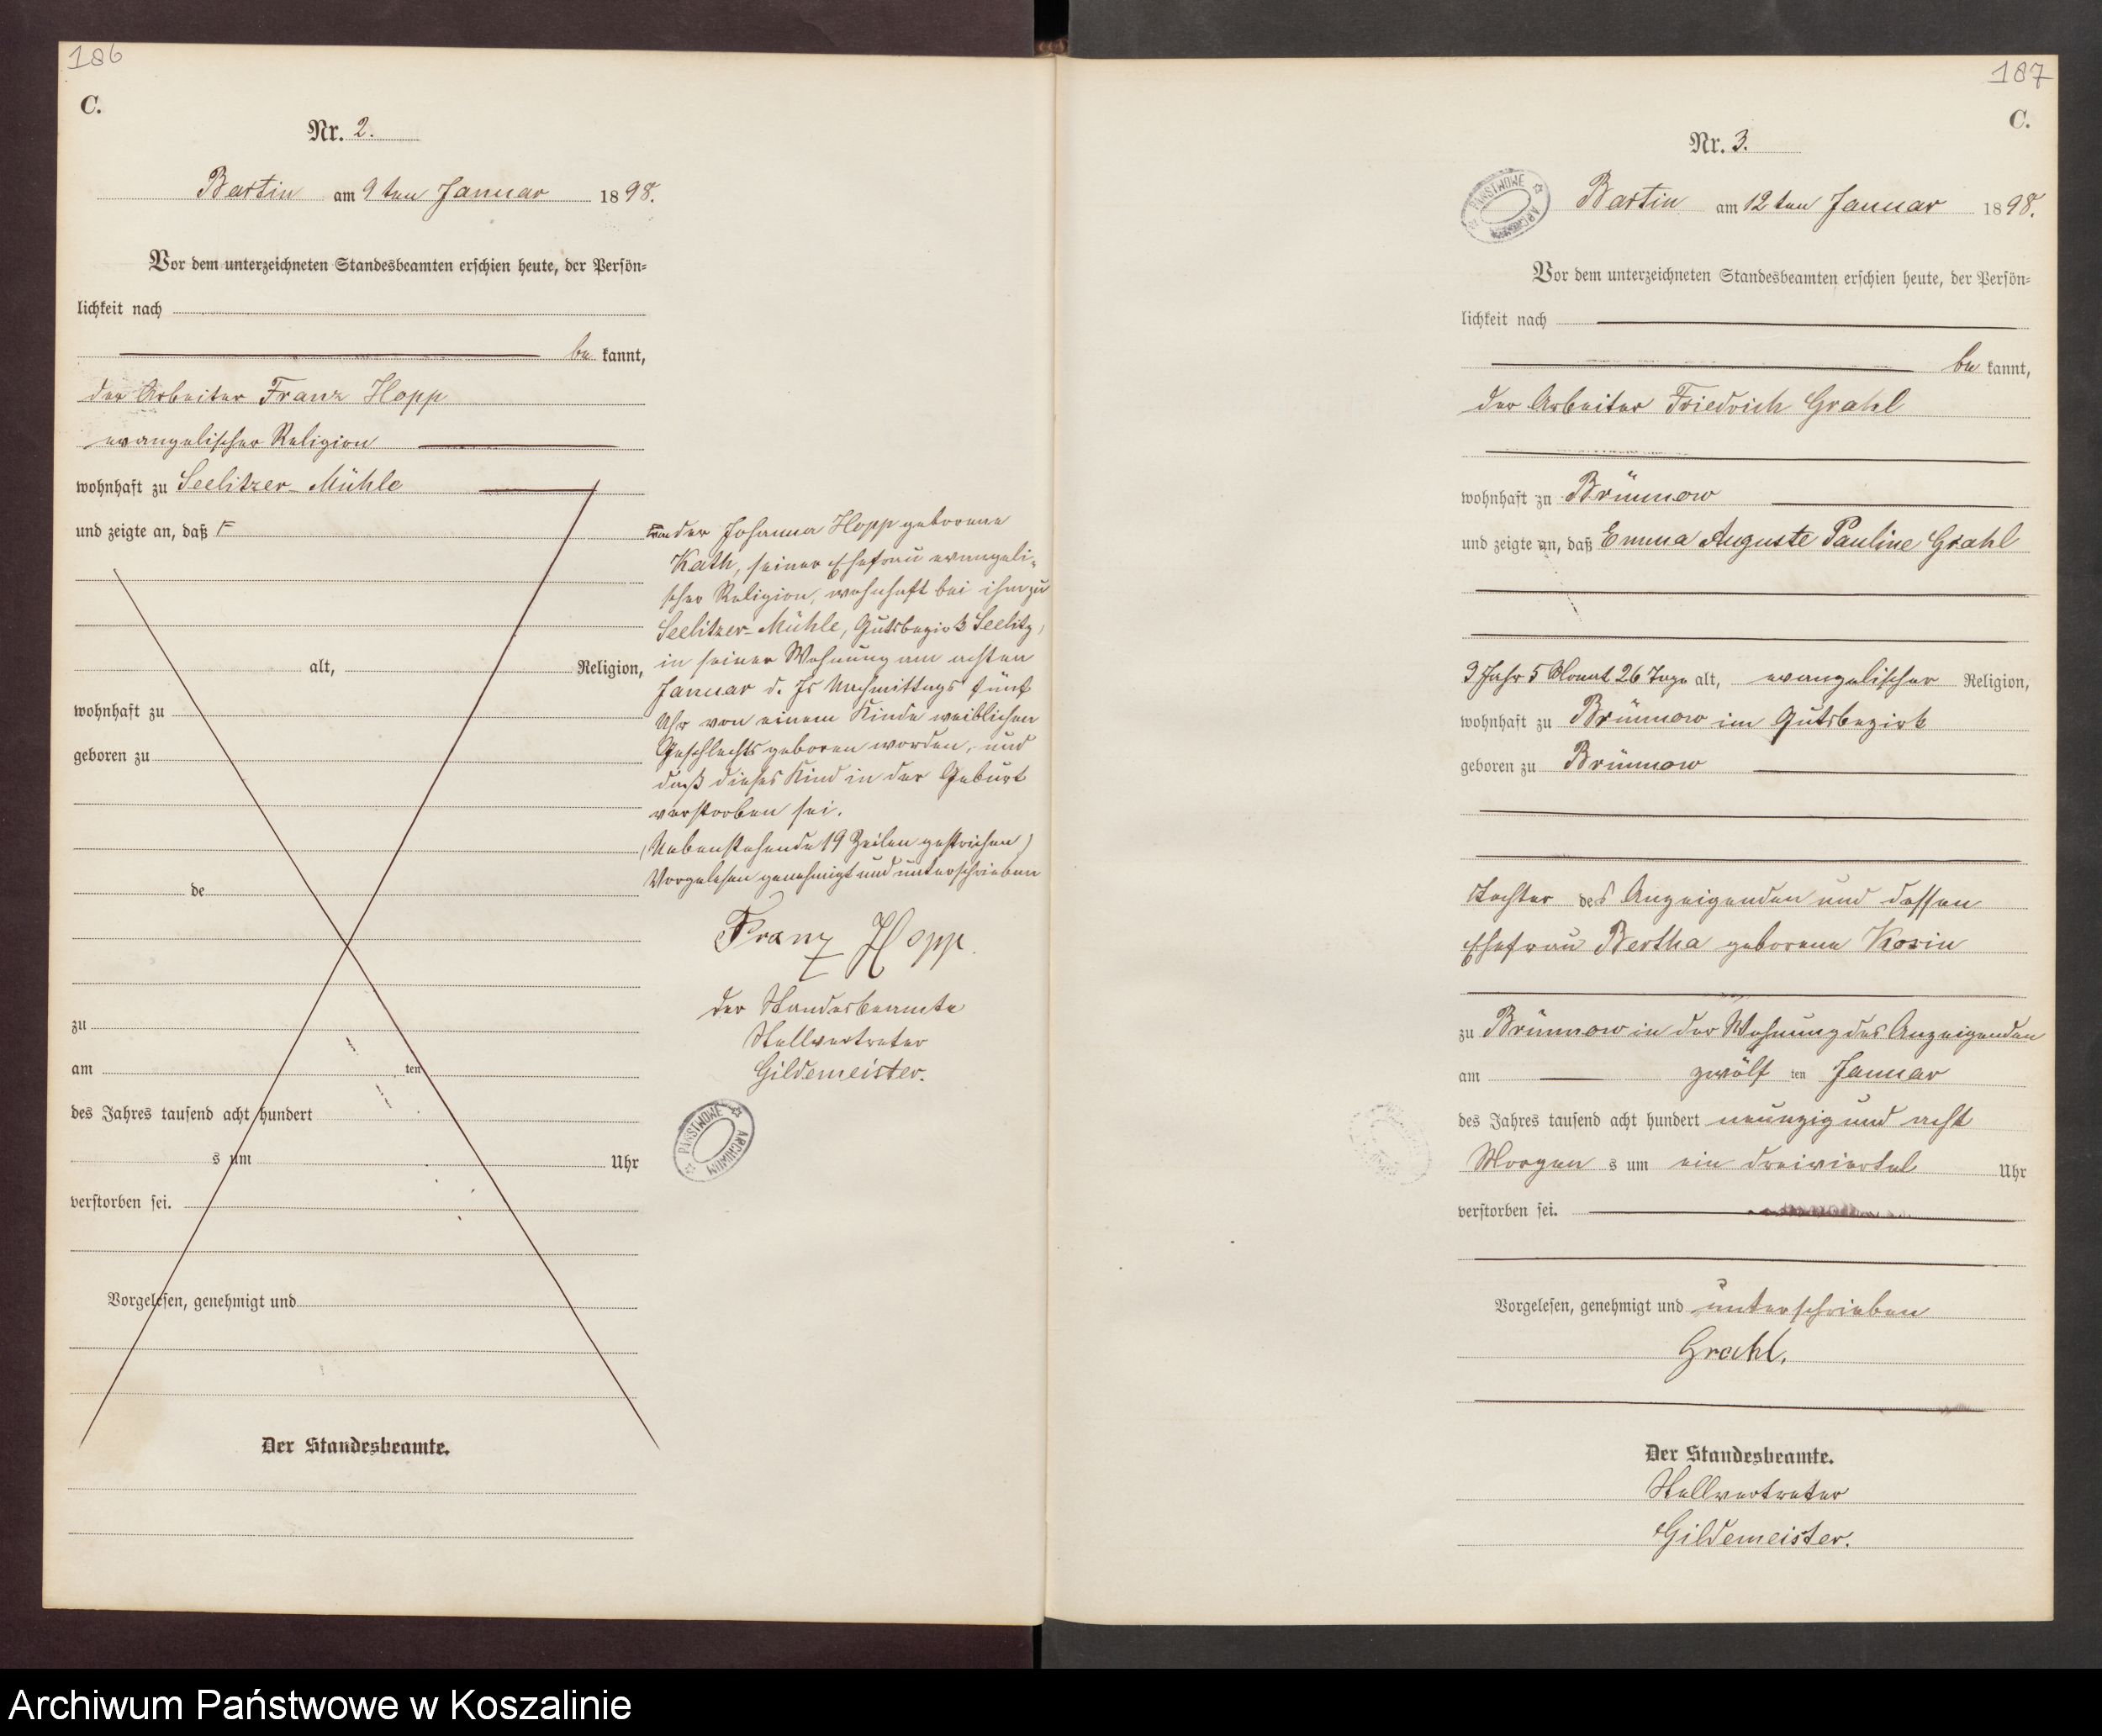 186
C.
Nr. 2.
Bartin am 9ten Januar 1898.
Vor dem unterzeichneten Standesbeamten erschien heute, der Persön-
lichkeit nach
be kannt,
der Arbeiter Franz Hopp
evangelischer Religion
wohnhaft zu Seelitzer-Mühle
und zeigte an, daß
alt, Religion,
wohnhaft zu
geboren zu
de
zu
am ten
des Jahres tausend acht hundert
s um Uhr
verstorben sei.
Vorgelesen, genehmigt und
Der Standesbeamte.
von der Johanna Hopp geborene
Kath, seiner Ehefrau evangeli-
scher Religion, wohnhaft bei ihm zu
Seelitzer-Mühle, Gutsbezirk Seelitz,
in seiner Wohnung am achten
Januar d. Js Nachmittags fünf
Uhr von einem Kinde weiblichen
Geschlechts geboren worden, und
daß dieses Kind in der Geburt
verstorben sei.
(Nebenstehende 19 Zeilen gestrichen)
Vorgelesen genehmigt und unterschrieben
Franz Hopp.
der Standesbeamte
Stellvertreter
Gildemeister.
ARCHIWUM PAŃSTWOWE
187
C.
Nr. 3.
ARCHIWUM PAŃSTWOWE
Bartin am 12ten Januar 1898.
Vor dem unterzeichneten Standesbeamten erschien heute, der Persön-
lichkeit nach
be kannt,
der Arbeiter Friedrich Grahl
wohnhaft zu Brünnow
und zeigte an, daß Emma Auguste Pauline Grahl
9 Jahr 5 Monat 26 Tage alt, evangelischer Religion,
wohnhaft zu Brünnow im Gutsbezirk
geboren zu Brünnow
Tochter des Anzeigenden und dessen
Ehefrau Bertha geborene Kosin
zu Brünnow in der Wohnung des Anzeigenden
am zwölf ten Januar
des Jahres tausend acht hundert neunzig und acht
Morgen s um ein dreiviertel Uhr
verstorben sei.
Vorgelesen, genehmigt und unterschrieben
Grahl.
Der Standesbeamte.
Stellvertreter
Gildemeister.
Archiwum Państwowe w Koszalinie